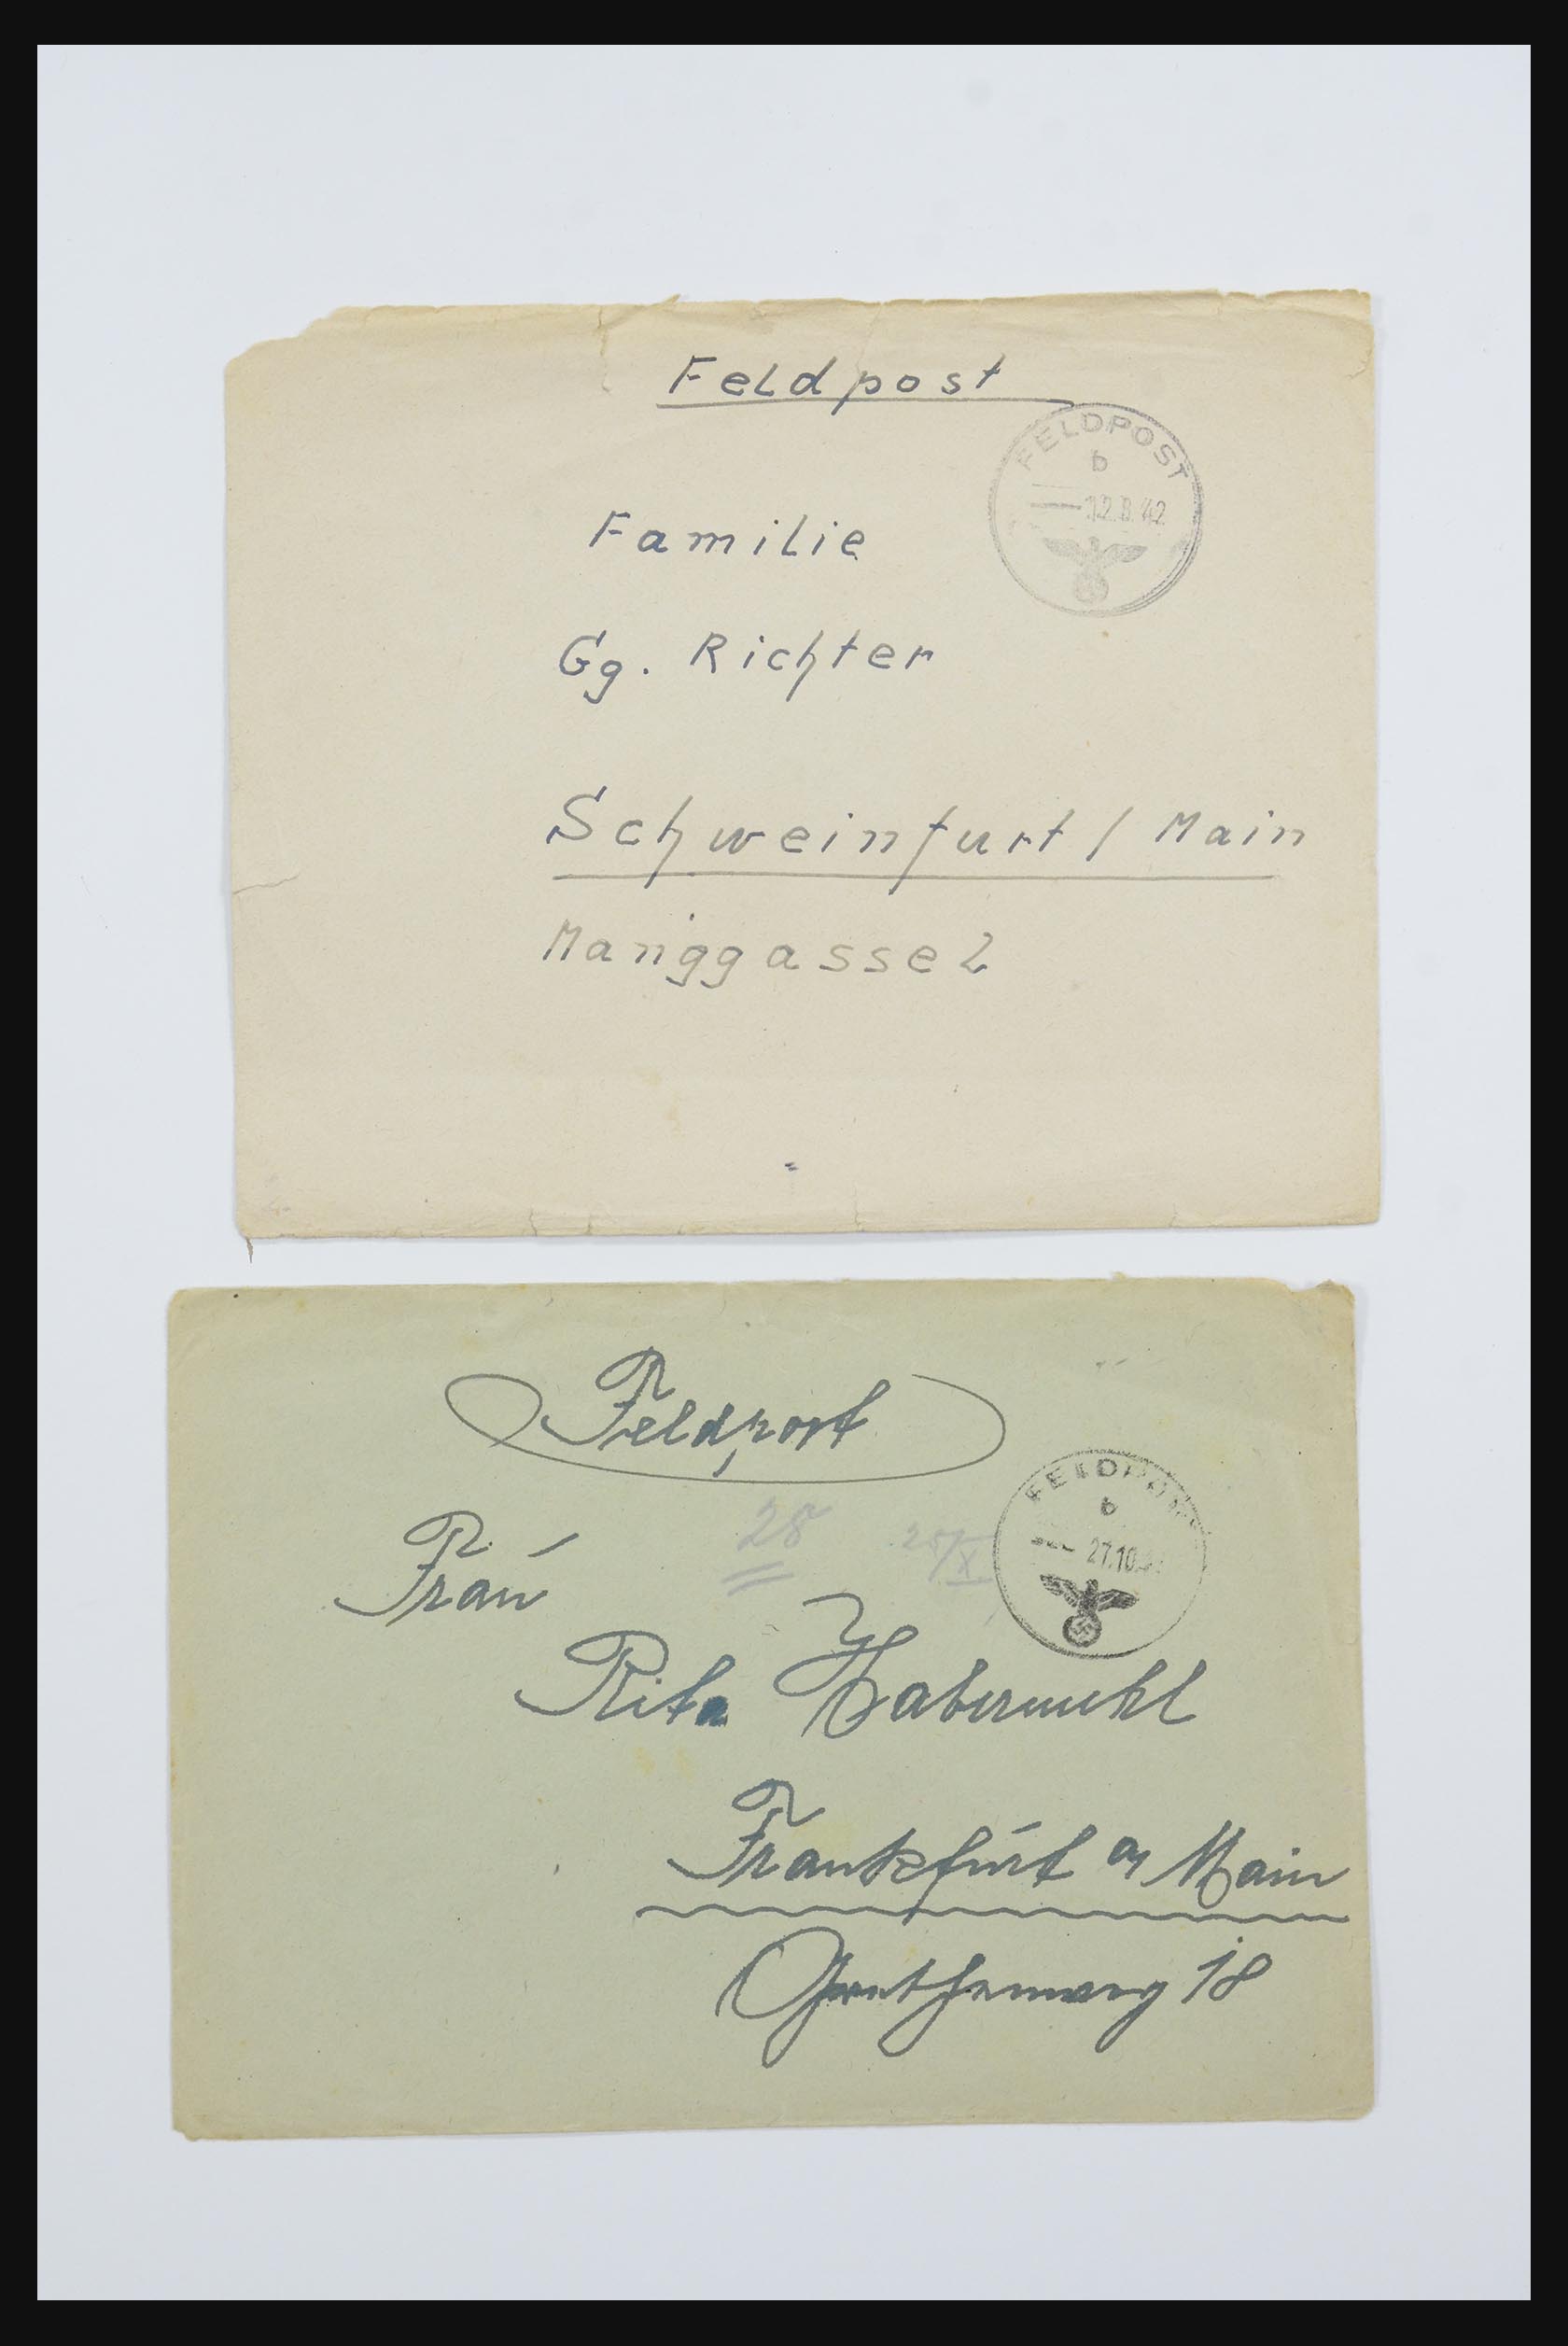 Feldpost
FELDPOST
b
12.8.42
Familie
Gg. Richter
Schweinfurt / Main
Manggasse 2
Feldpost
FELDPOST
b
27.10.
Frau
28
25/X
Rita Habermehl
Frankfurt a Main
18